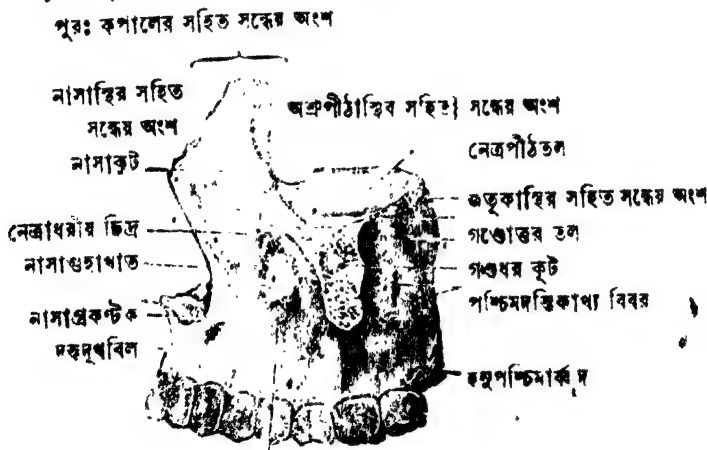 পুরঃ কপালের সহিত সন্ধেয় অংশ
নাসাস্থির সহিত
সন্ধেয় অংশ
নাসাকূট
নেত্রাধরীয় ছিদ্র
নাসাগুহাখাত
নাসাপ্রকণ্টক
দন্তদূখবিল
অশ্রুপীঠাস্থিব সহিত সন্ধেয় অংশ
নেত্রপীঠতল
জতূকাস্থির সহিত সন্ধেয় অংশ
গণ্ডোত্তর তল
গণ্ডধর কূট
পশ্চিমদন্তিকাখ্য বিবর
হনুপশ্চিমার্ব্বুদ